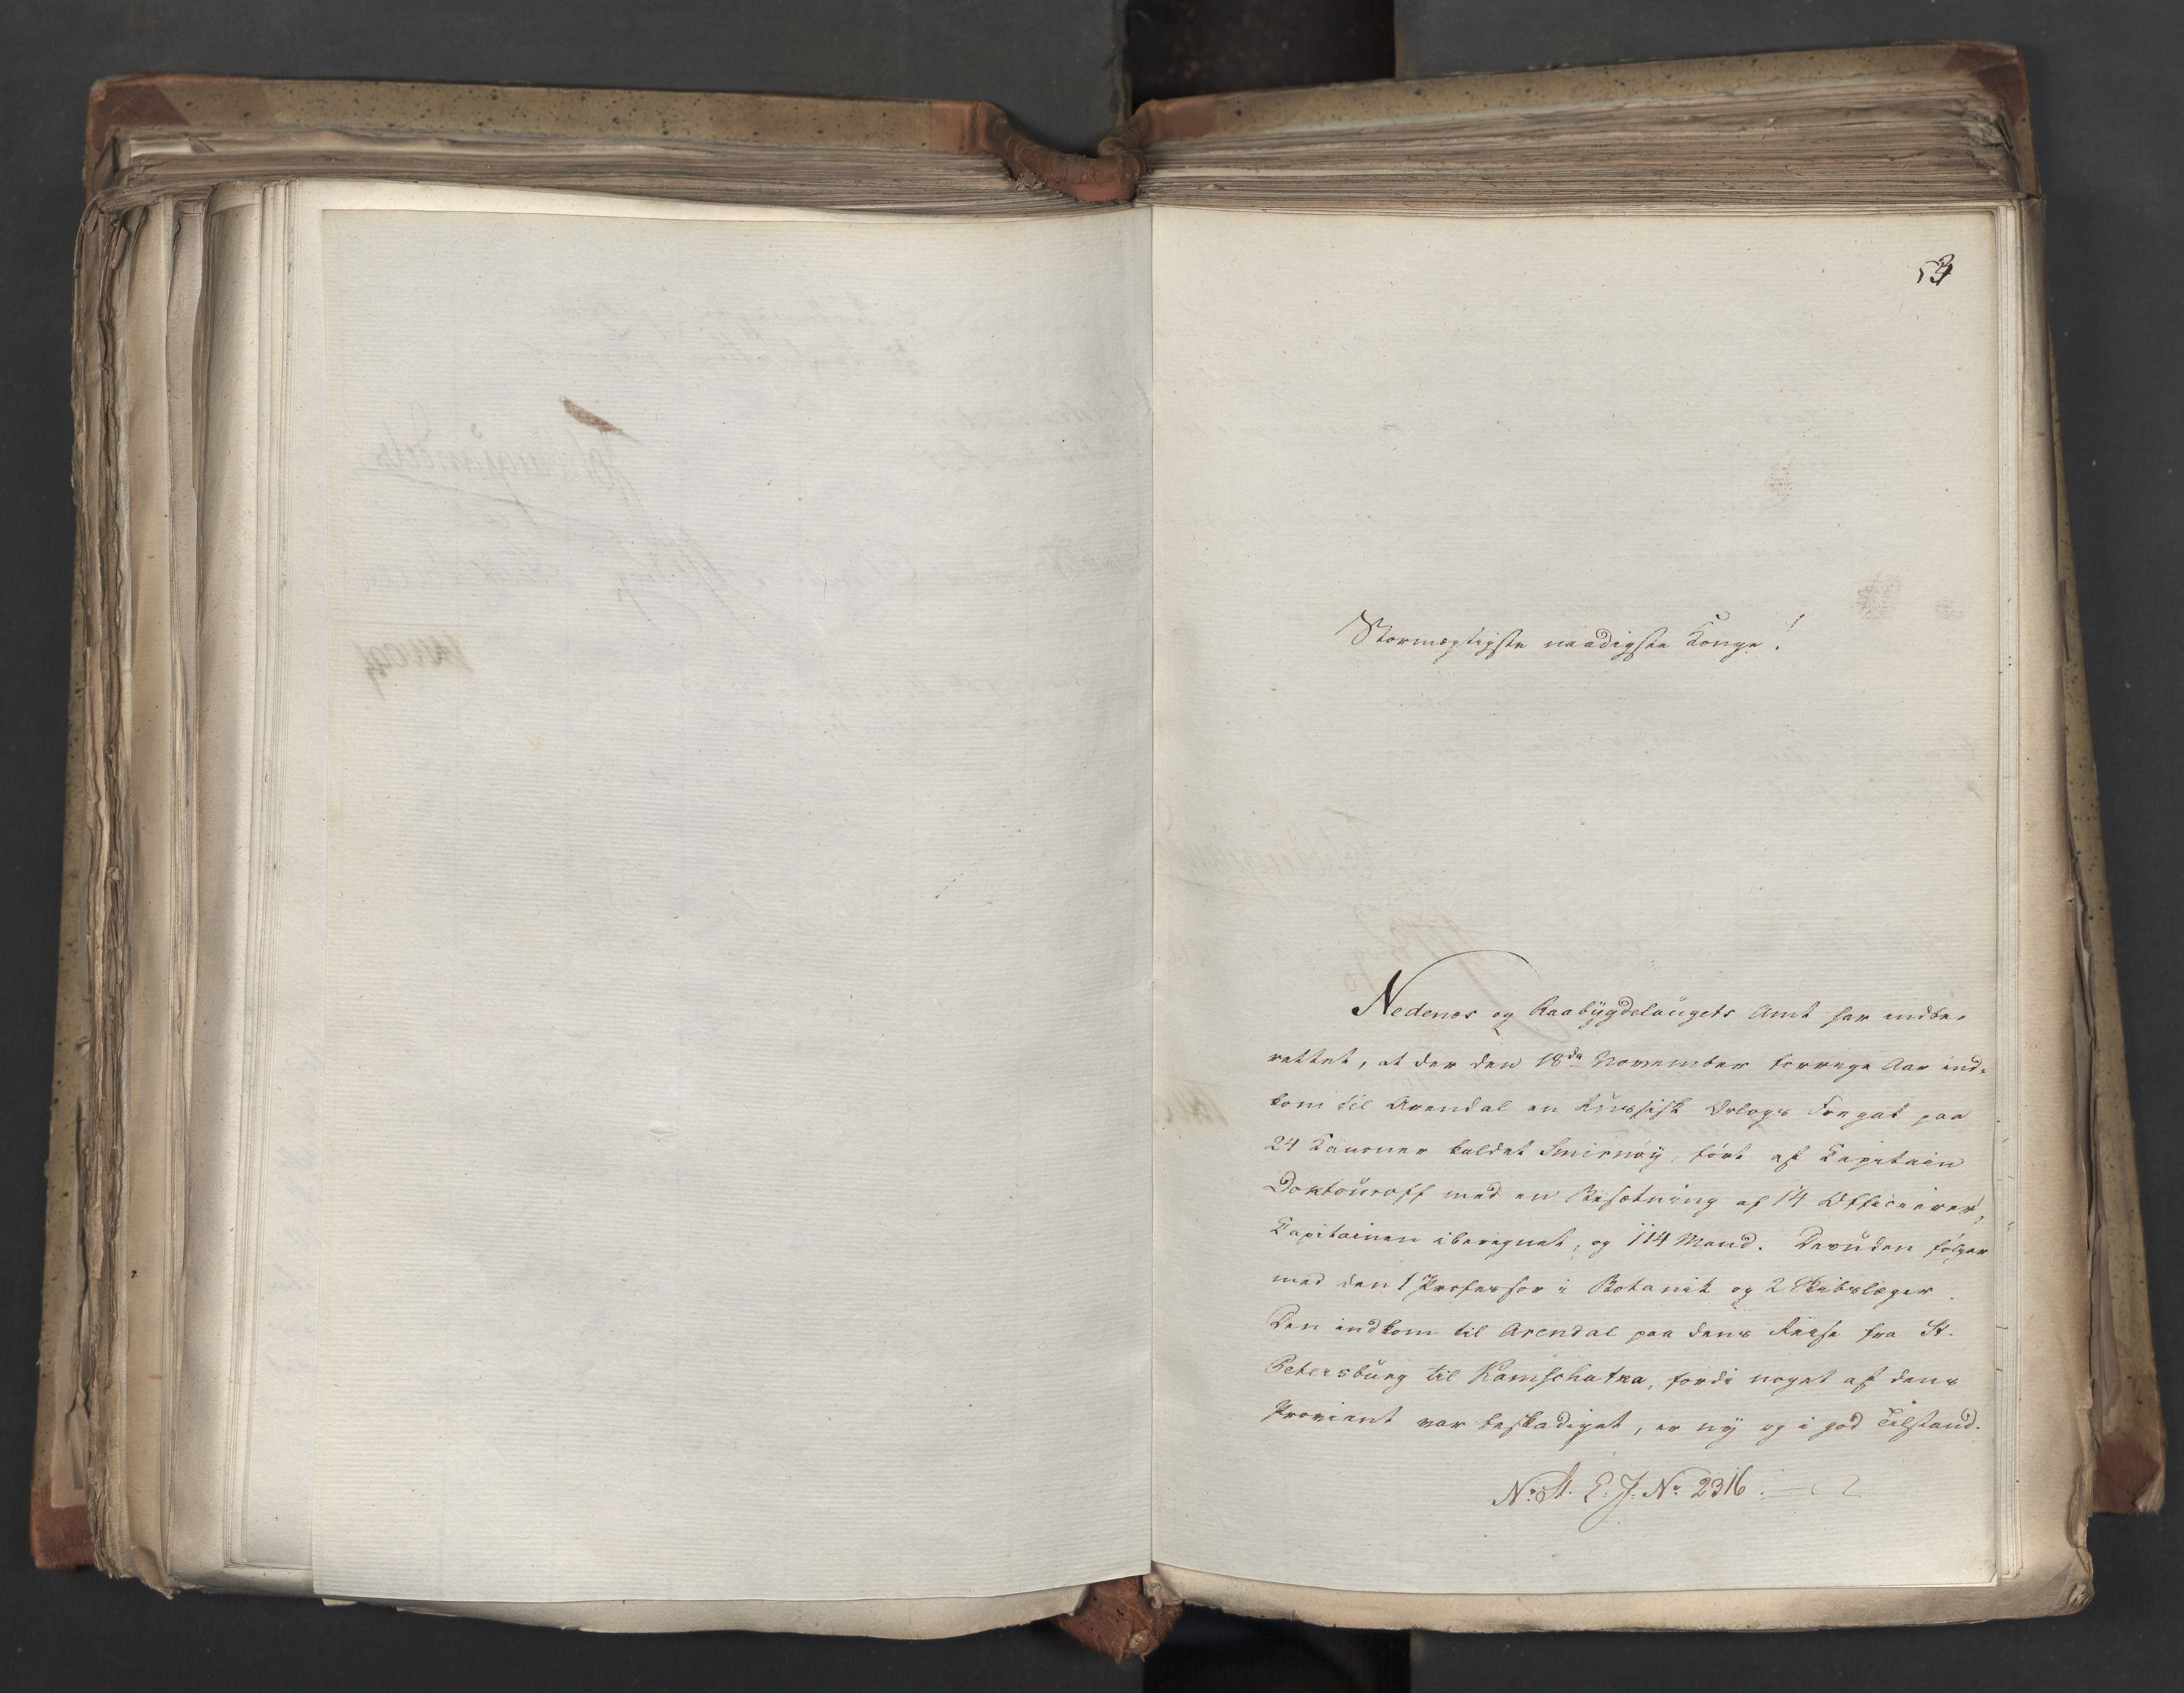 53
Stormægtigste naadigste Konge!
Nedenes og Raabÿgdelaugets Amt har indbe-
rettet, at der den 18de November forrige Aar ind-
kom til Arendal en Russisk Orlogs Fregat paa
24 Kanoner kaldet Smirnöÿ, fört af Kapitain
Doktouroff med en Besætning af 14 Officierer,
Kapitainen iberegnet, og 114 Mand. Desuden fölger
med den 1 Professor i Botanik og 2 Skibslæger.
Den indkom til Arendal paa dens Reise fra St.
Petersburg til Kamschatka, fordi noget af dens
Proviant var beskadiget, er nÿ og i god Tilstand.
N: A. E. J. No 2316.